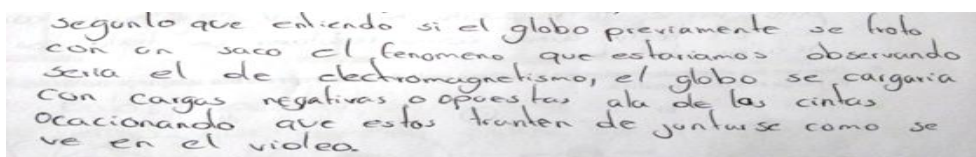 segunlo que entiendo si el globo previamente se froto
con un saco el fenomeno que estariamos observando
seria el de electromagnetismo, el globo se cargaria
con cargas negativas o opuestas ala de las cintas
ocacionando que estos tranten de juntarse como se
ve en el video.